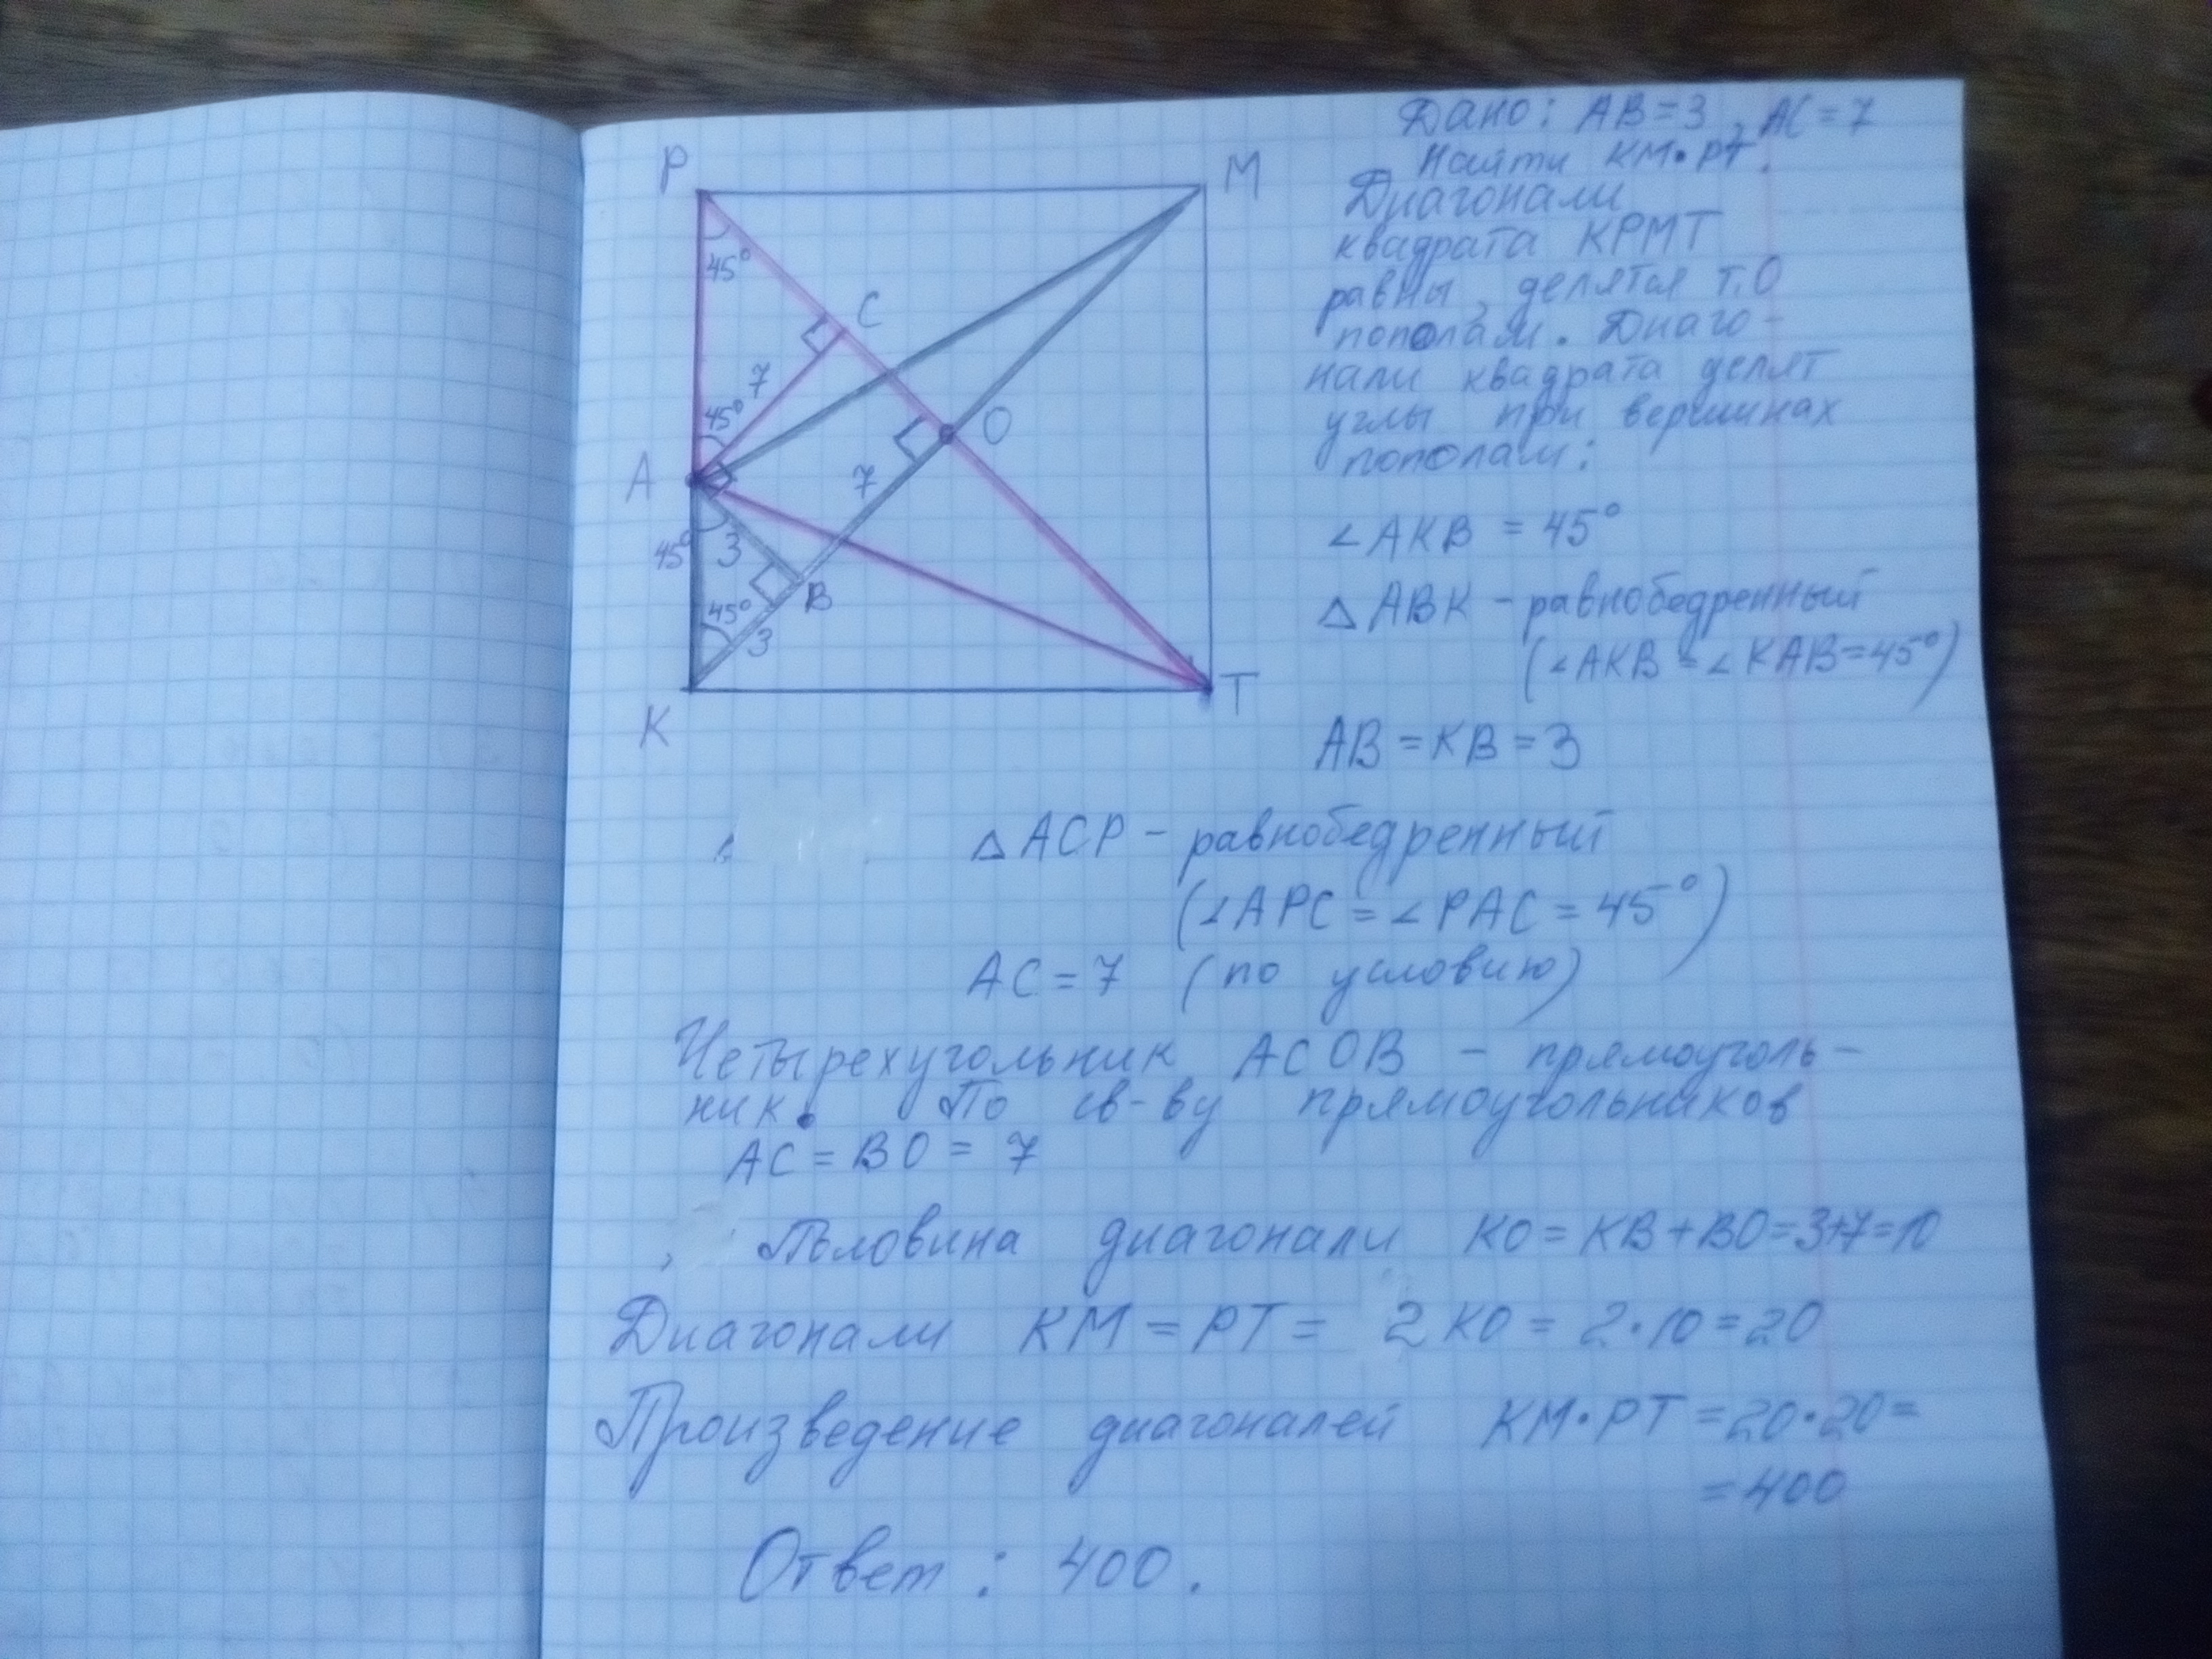 Дано: AB=3, AC=7
Найти KM·PT.
Диагонали
квадрата КРМТ
равны, делятся т.О
пополам. Диаго-
нали квадрата делят
углы при вершинах
пополам:
∠AKB = 45°
△ABK - равнобедренный
(∠AKB = ∠KAB=45°)
AB = KB = 3
△ACP - равнобедренный
(∠APC = ∠PAC = 45°)
AC = 7 (по условию)
Четырехугольник ACOB - прямоуголь-
ник. По св-ву прямоугольников
AC = BO = 7
Половина диагонали KO = KB + BO = 3+7=10
Диагонали KM = PT = 2KO = 2·10 = 20
Произведение диагоналей KM·PT = 20·20 =
= 400
Ответ: 400.
P
M
45°
C
7
45°
O
A
7
45°
3
B
45°
3
T
K